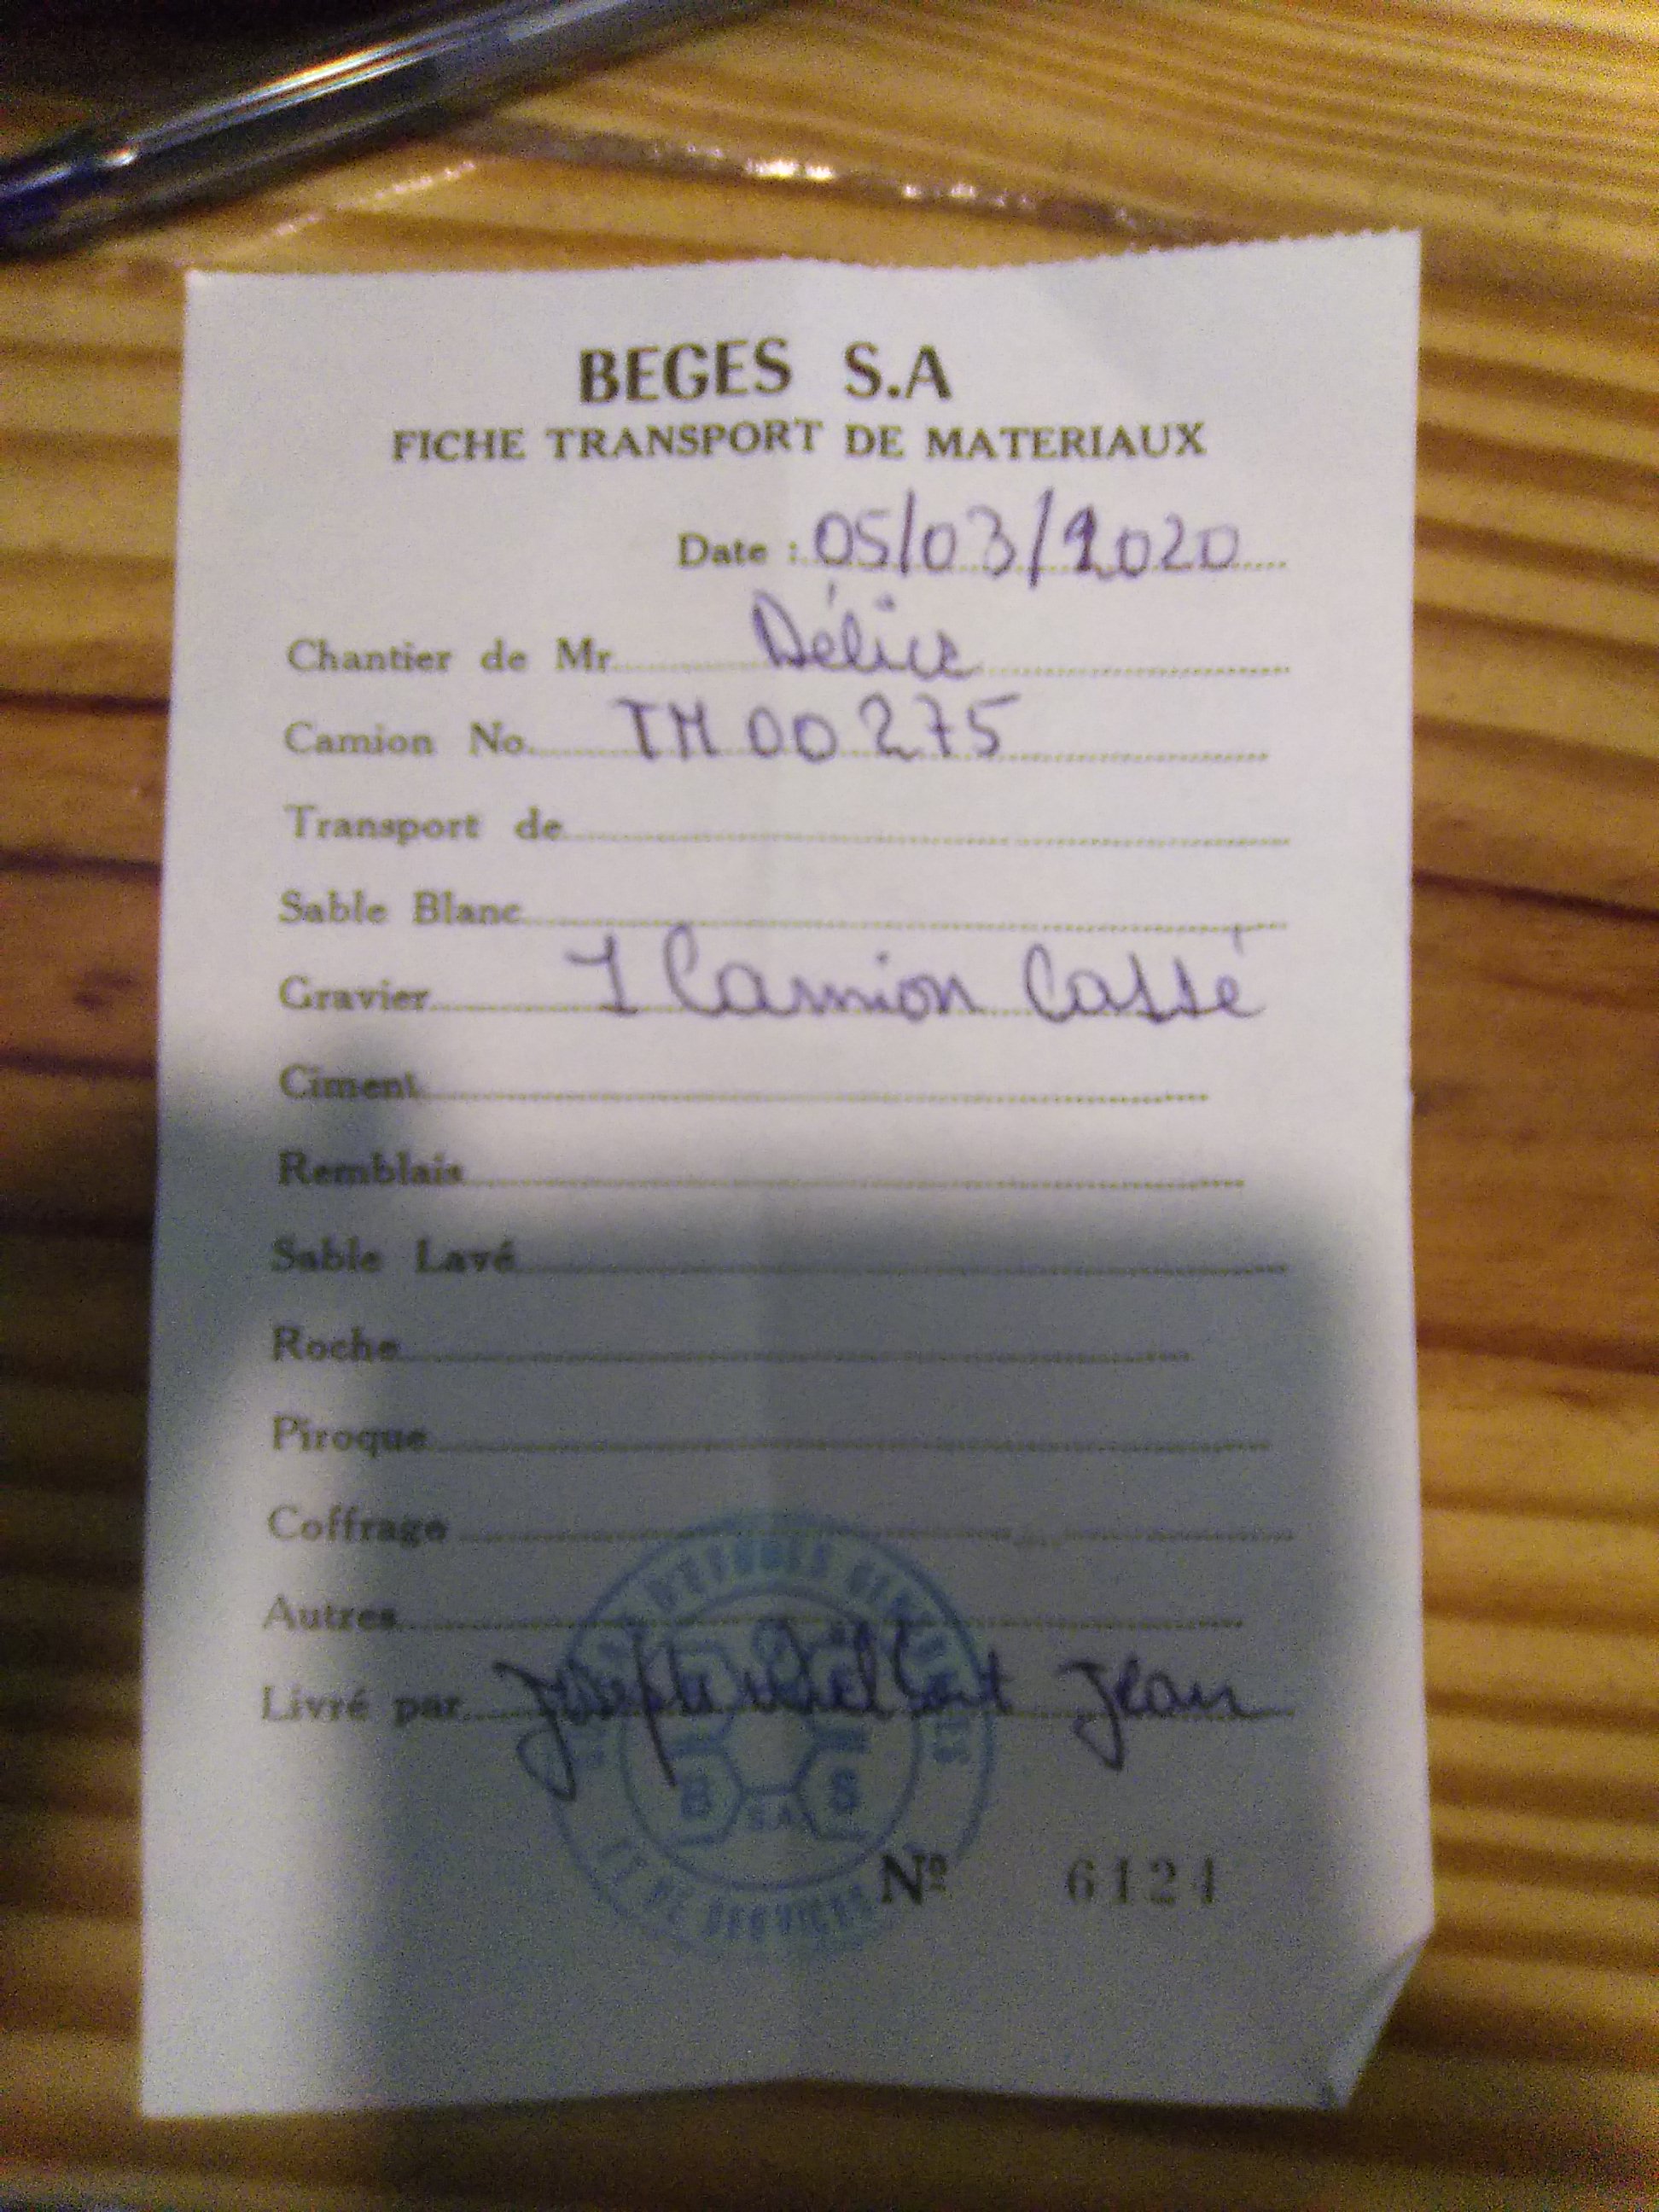 BEGES S.A
FICHE TRANSPORT DE MATERIAUX
Date : 05/03/2020
Chantier de Mr Délice
Camion No. TM 00275
Transport de
Sable Blanc
Gravier 1 Camion Cassé
Ciment
Remblais
Sable Lavé
Roche
Piroque
Coffrage
Autres
Livré par Joseph Jean
D'ETUDES GENERALES
B S.A S
ET DE SERVICES
Nº 6124